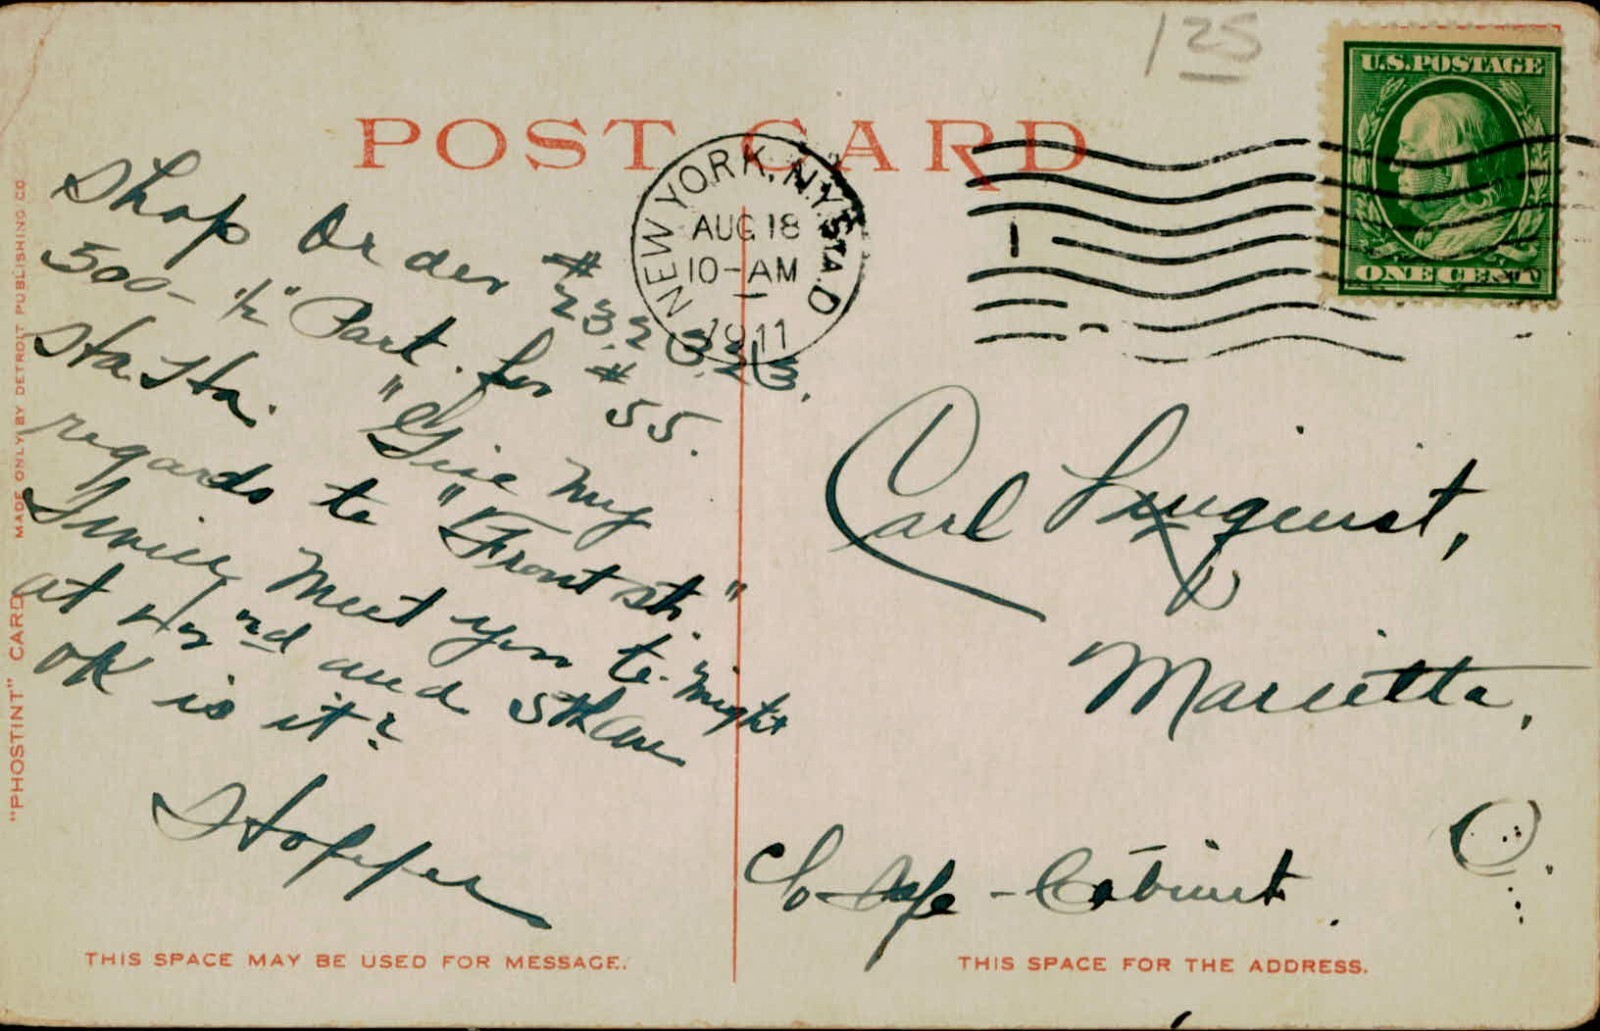 125
U.S.POSTAGE
ONE CENT
POST CARD
NEW YORK, N.Y. STA. D
AUG 18
10-AM
1911
1
Shop Order # 23,2 3,23,
500- 1/2" Part. for # 55.
Sta. Sta. "Give my
regards to "Front st."
Meet you to-might
at 42nd and 5th Ave
OK is it?
Hopper
Carl
Marietta,
c/o Safe-Cabinet.
THIS SPACE MAY BE USED FOR MESSAGE.
THIS SPACE FOR THE ADDRESS.
"PHOSTINT" CARD MADE ONLY BY DETROIT PUBLISHING CO